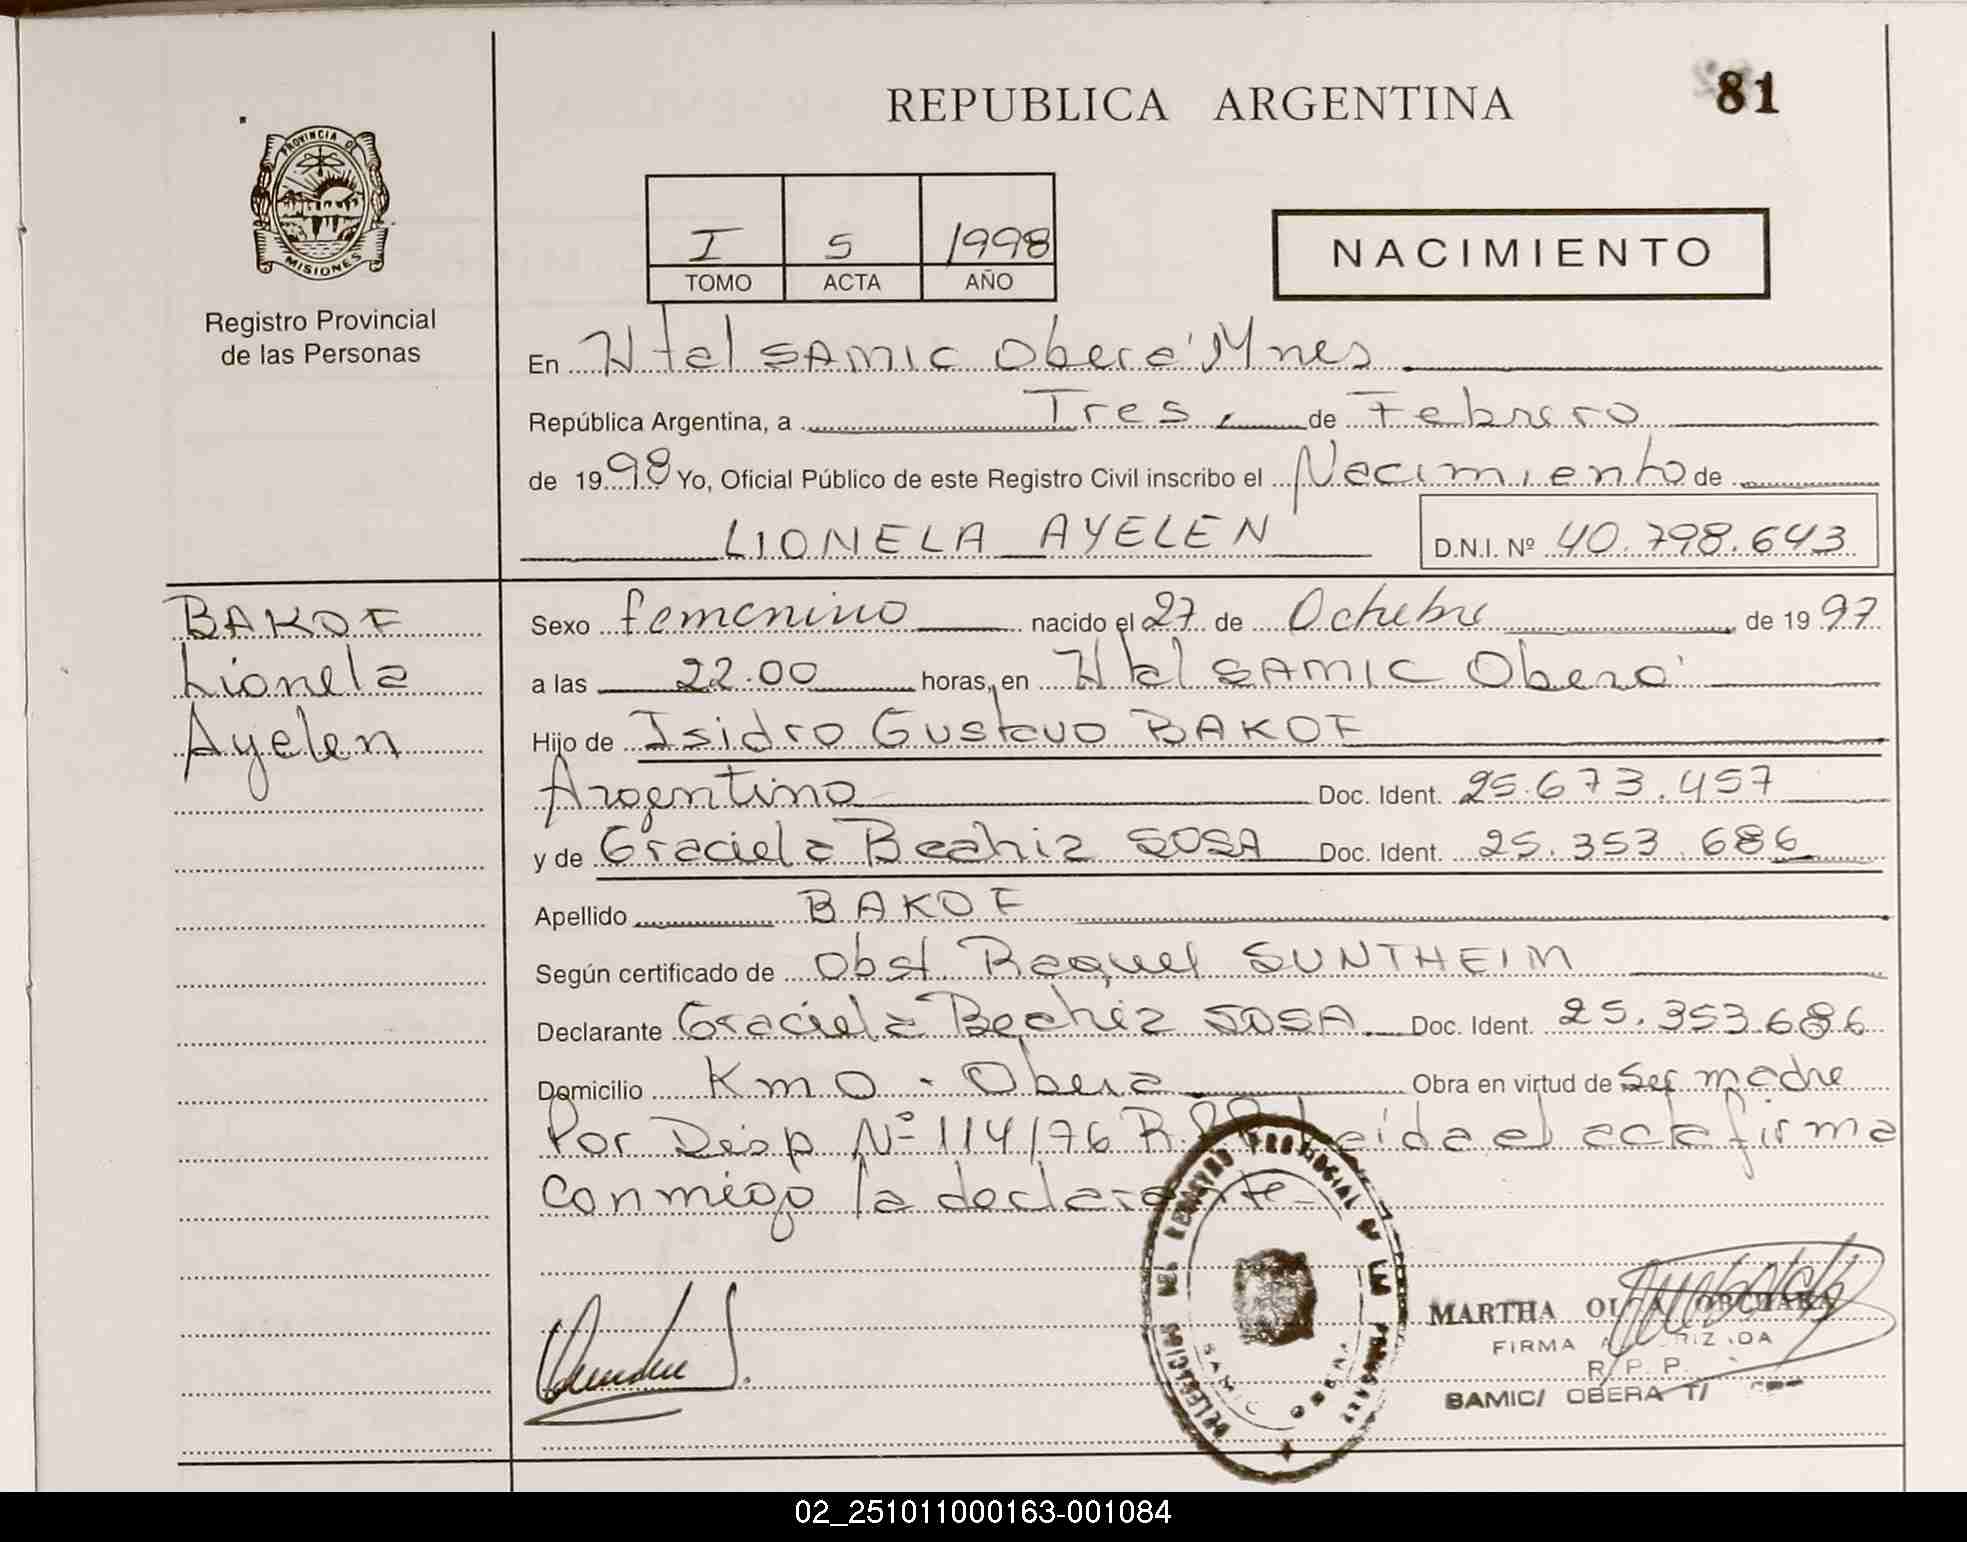 REPUBLICA ARGENTINA
81
PROVINCIA DE
MISIONES
Registro Provincial
de las Personas
I 5 1998
TOMO ACTA AÑO
NACIMIENTO
En Htal SAMIC Oberá Mnes
República Argentina, a Tres de Febrero
de 1998 Yo, Oficial Público de este Registro Civil inscribo el Nacimiento de
LIONELA AYELEN D.N.I. Nº 40.798.643
BAKOF
Lionela
Ayelen
Sexo femenino nacido el 27 de Octubre de 1997
a las 22.00 horas, en Htal SAMIC Oberá
Hijo de Isidro Gustavo BAKOF
Argentino Doc. Ident. 25.673.457
y de Graciela Beatriz SOSA Doc. Ident. 25.353.686
Apellido BAKOF
Según certificado de Obst Raquel SUNTHEIM
Declarante Graciela Beatriz SOSA Doc. Ident. 25.353.686
Domicilio Km 0 - Obera Obra en virtud de Ser madre
Por Disp Nº 114/76 leída el acta firma
conmigo la declarante
DELEGACION DEL REGISTRO PROVINCIAL DE LAS PERSONAS
MARTHA OLGA
FIRMA AUTORIZADA
R. P. P.
SAMIC/ OBERA
02_251011000163-001084